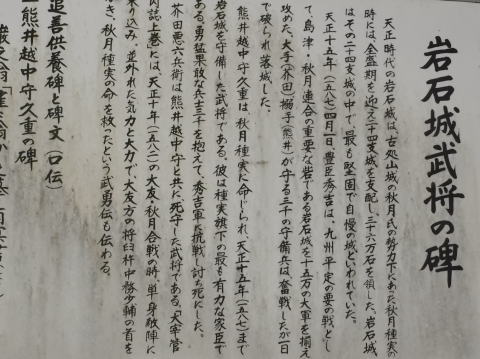 岩石城武将の碑
天正時代の岩石城は、古処山城の秋月氏の勢力下にあった秋月種実の
時には、全盛期を迎え二十四支城を支配し三十六万石を領した。岩石城
はその二十四支城の中で、最も堅固で自慢の城といわれていた。
天正十五年(一五八七)四月一日、豊臣秀吉は、九州平定の要の戦とし
て、島津・秋月連合の重要な砦である岩石城を十五万の大軍を揃え
攻めた。大手(芥田)搦手(熊井)が守る三千の守備兵は、奮戦したが一日
で破られ落城した。
熊井越中守久重は、秋月種実に命じられ、天正十五年(一五八七)まで
岩石城を守備した武将である。彼は種実旗下の最も有力な家臣で
ある。勇猛果敢な兵士三千を抱えて、秀吉軍に抗戦し討ち死にした。
芥田悪六兵衛は熊井越中守と共に死守した武将である。「太宰管
内誌上巻」には、天正十年(一五八二)の大友・秋月合戦の時、単身敵陣に
乗り込み、並外れた気力と大力で、大友方の将臼杵中務少輔の首を
、秋月種実の命を救ったという武勇伝も伝わる。
追善供養碑と碑文(口伝)
熊井越中守久重の碑